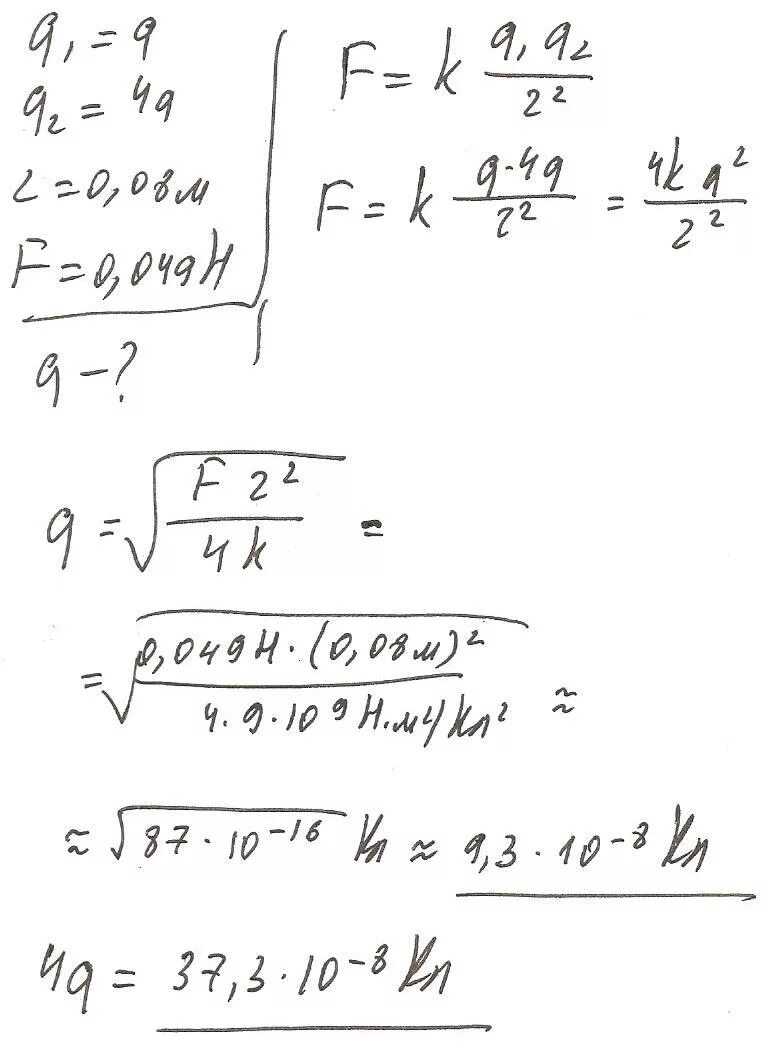 q₁ = q
q₂ = 4q
r = 0,08м
F = 0,049Н
q – ?
F = k q₁ q₂ / r²
F = k q·4q / r² = 4k q² / r²
q = √(F r² / 4k) =
= √(0,049Н·(0,08м)² / 4·9·10⁹ Н·м²/Кл²) ≈
≈ √(87·10⁻¹⁶) Кл ≈ 9,3·10⁻⁸ Кл
4q = 37,3·10⁻⁸ Кл